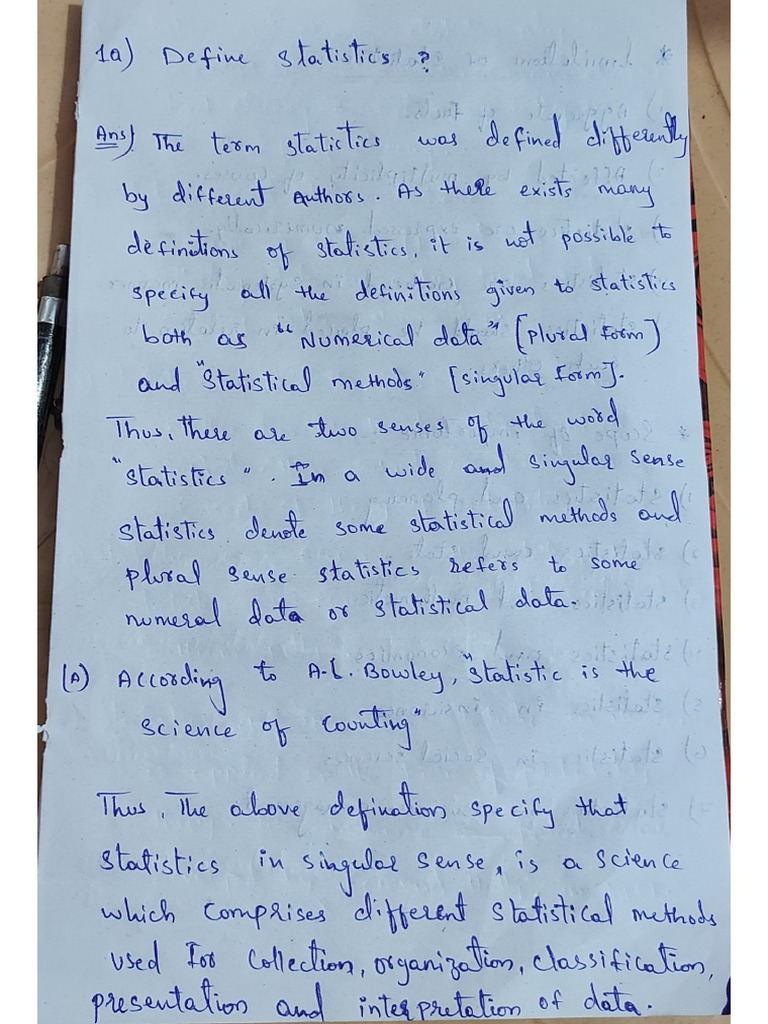 1a) Define statistics?
Ans) The term statictics was defined differently
by different Authors. As there exists many
definitions of statistics, it is not possible to
specify all the definitions given to statistics
both as "Numerical data" [plural form]
and "Statistical methods" [singular form].
Thus, there are two senses of the word
"statistics". In a wide and singular sense
statistics denote some statistical methods and
plural sense statistics refers to some
numeral data or statistical data.
(A) According to A.L. Bowley, "statistic is the
science of counting"
Thus, The above defination specify that
statistics in singular sense, is a science
which comprises different statistical methods
used for collection, organization, classification,
presentation and interpretation of data.